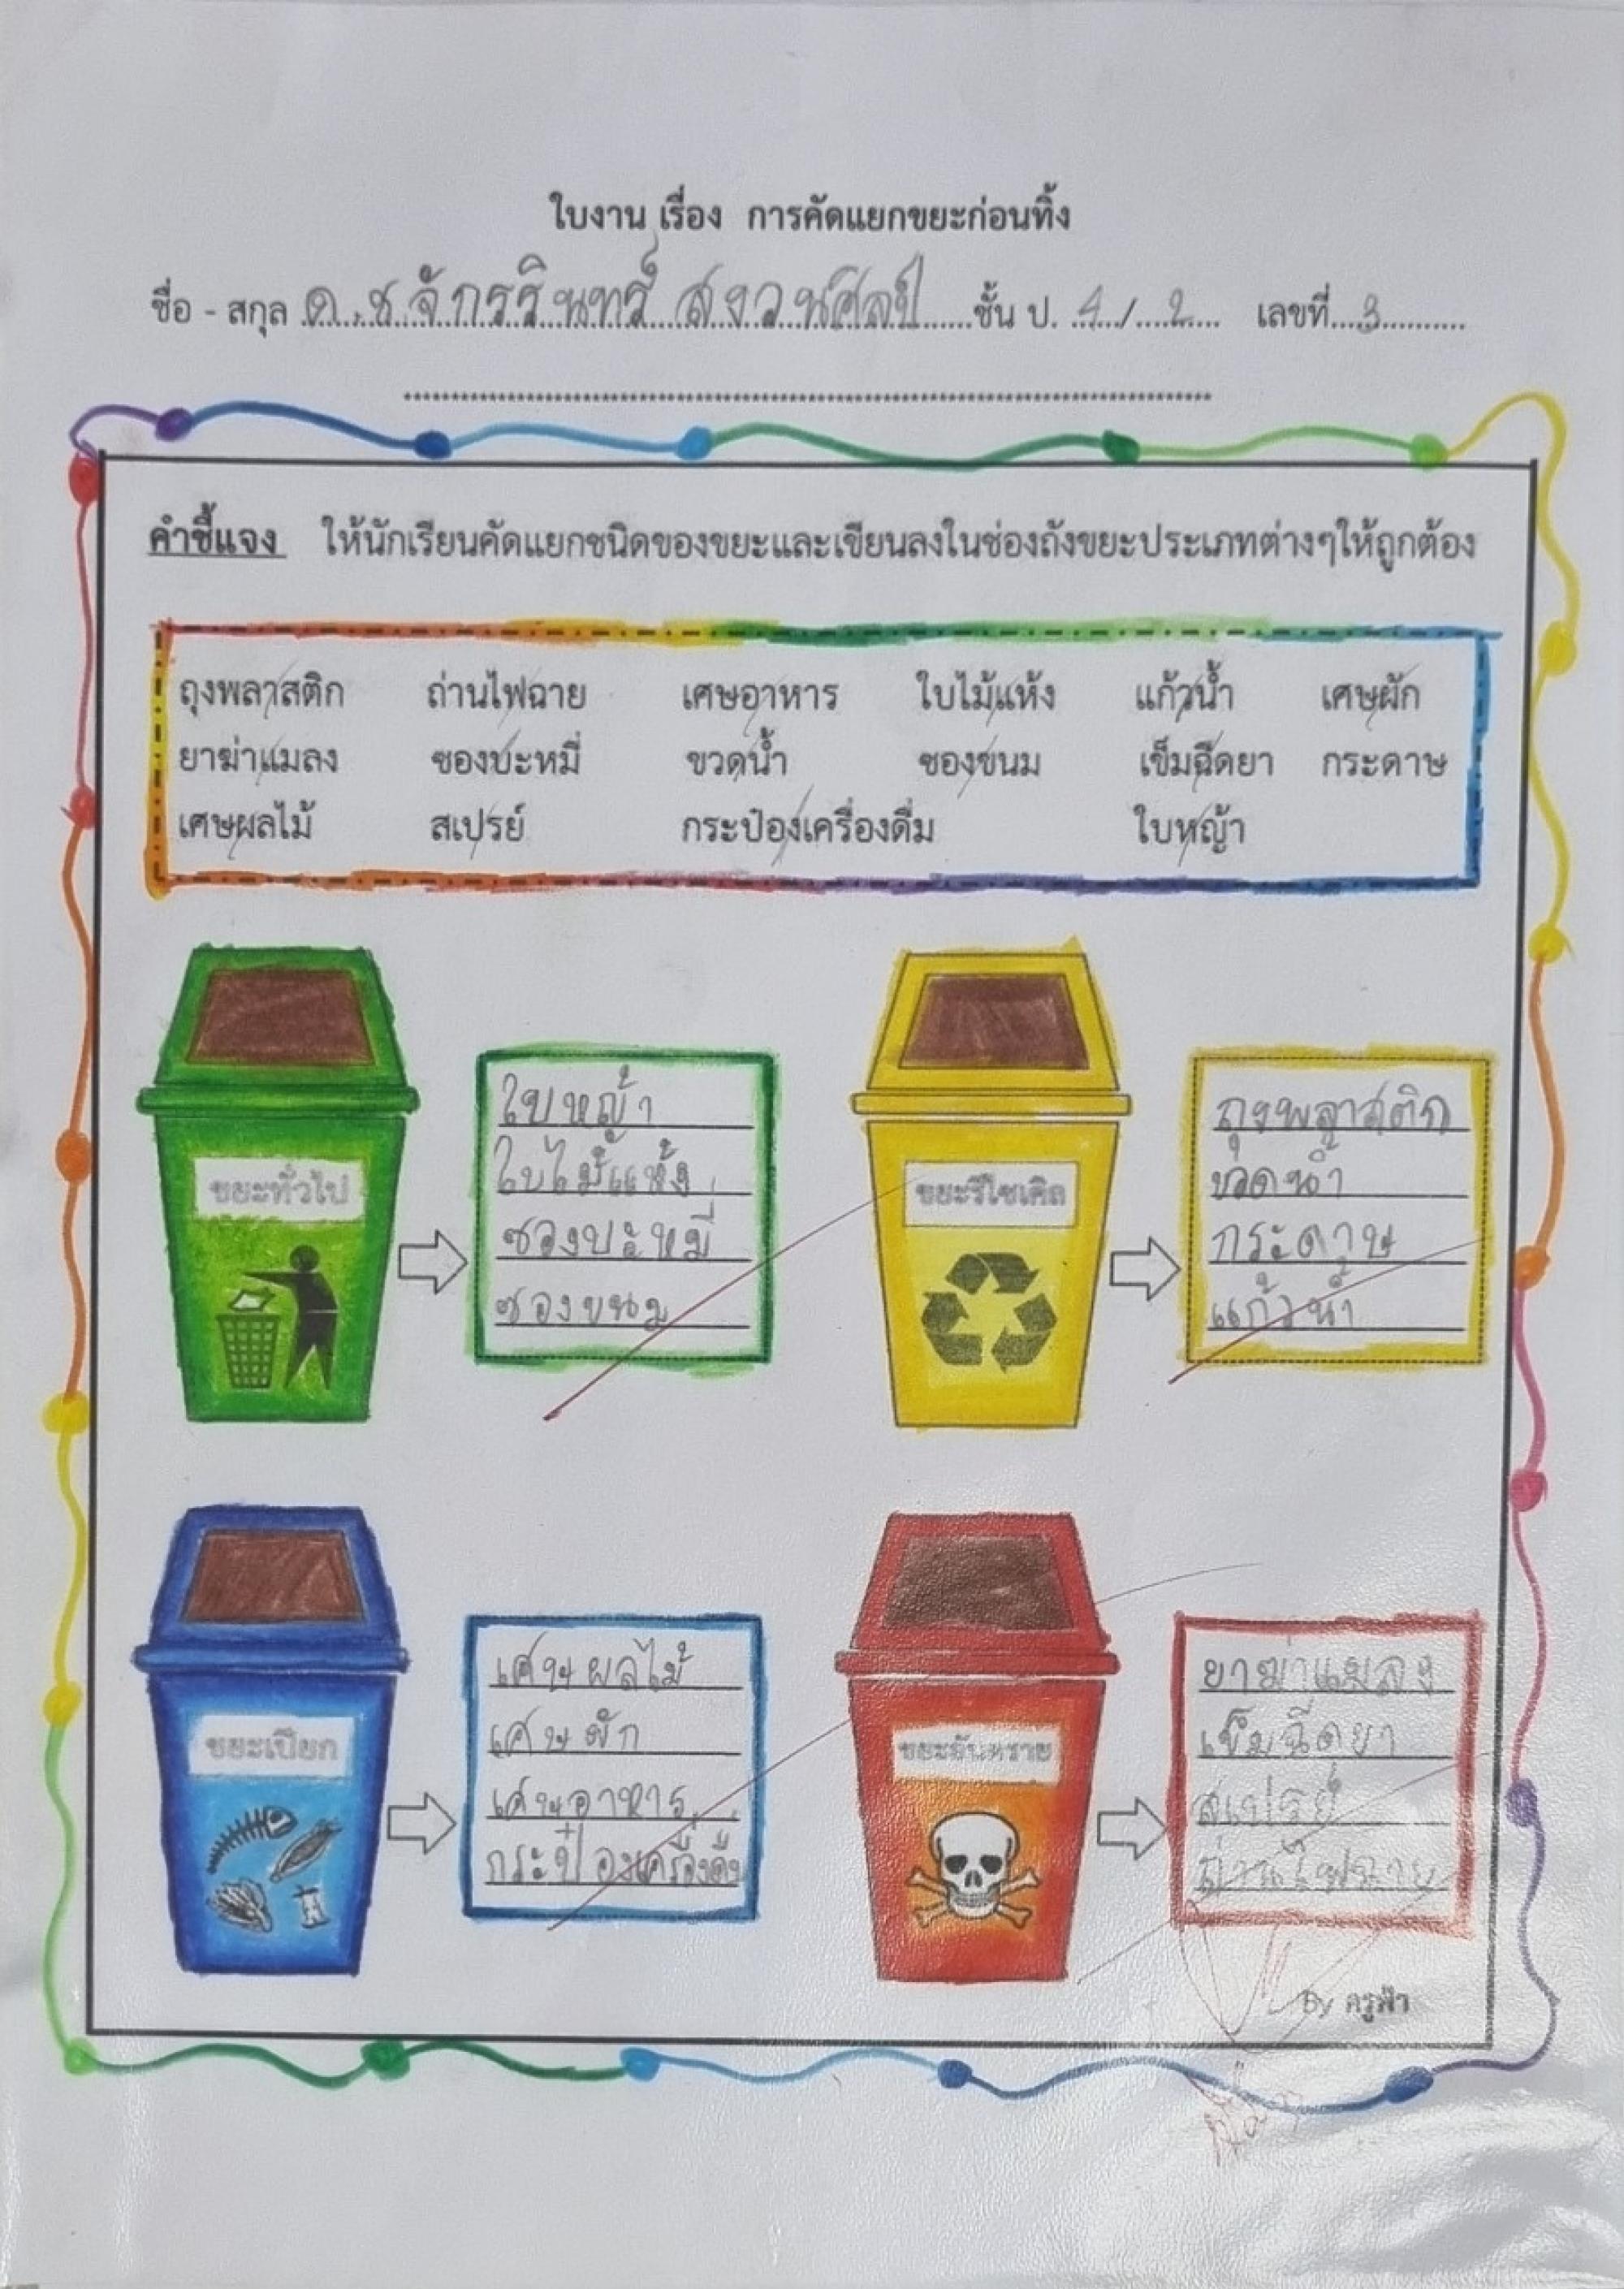 ใบงาน เรื่อง การคัดแยกขยะก่อนทิ้ง
ชื่อ - สกุล ด.ช จักรรินทร์ สงวนศิลป์ ชั้น ป. 4 / 2 เลขที่ 3
คำชี้แจง ให้นักเรียนคัดแยกชนิดของขยะและเขียนลงในช่องถังขยะประเภทต่างๆให้ถูกต้อง
ถุงพลาสติก ถ่านไฟฉาย เศษอาหาร ใบไม้แห้ง แก้วน้ำ เศษผัก
ยาฆ่าแมลง ซองบะหมี่ ขวดน้ำ ซองขนม เข็มฉีดยา กระดาษ
เศษผลไม้ สเปรย์ กระป๋องเครื่องดื่ม ใบหญ้า
ขยะทั่วไป
ใบหญ้า
ใบไม้แห้ง
ซองบะหมี่
ซองขนม
ขยะรีไซเคิล
ถุงพลาสติก
ขวดน้ำ
กระดาษ
แก้วน้ำ
ขยะเปียก
เศษผลไม้
เศษผัก
เศษอาหาร
กระป๋องเครื่องดื่ม
ขยะอันตราย
ยาฆ่าแมลง
เข็มฉีดยา
สเปรย์
ถ่านไฟฉาย
By ครูฟ้า